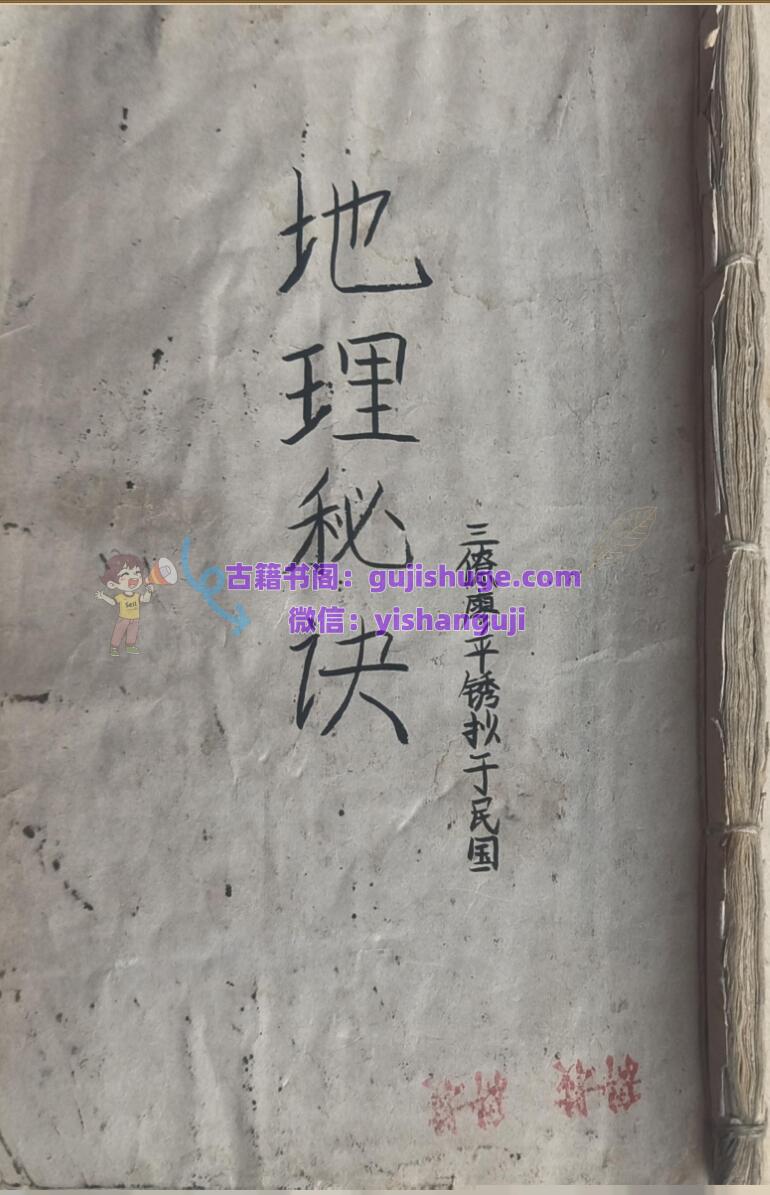 地理秘诀
三僚廖平锈拟于民国
古籍书阁：gujishuge.com
微信：yishanguji
Sell